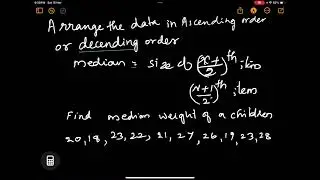 Arrange the data in Ascending order
or decending order
median = size of (x+1/2)th item
(x+1/2)th item
Find median weight of a children
20, 18, 23, 22, 21, 27, 26, 19, 23, 28